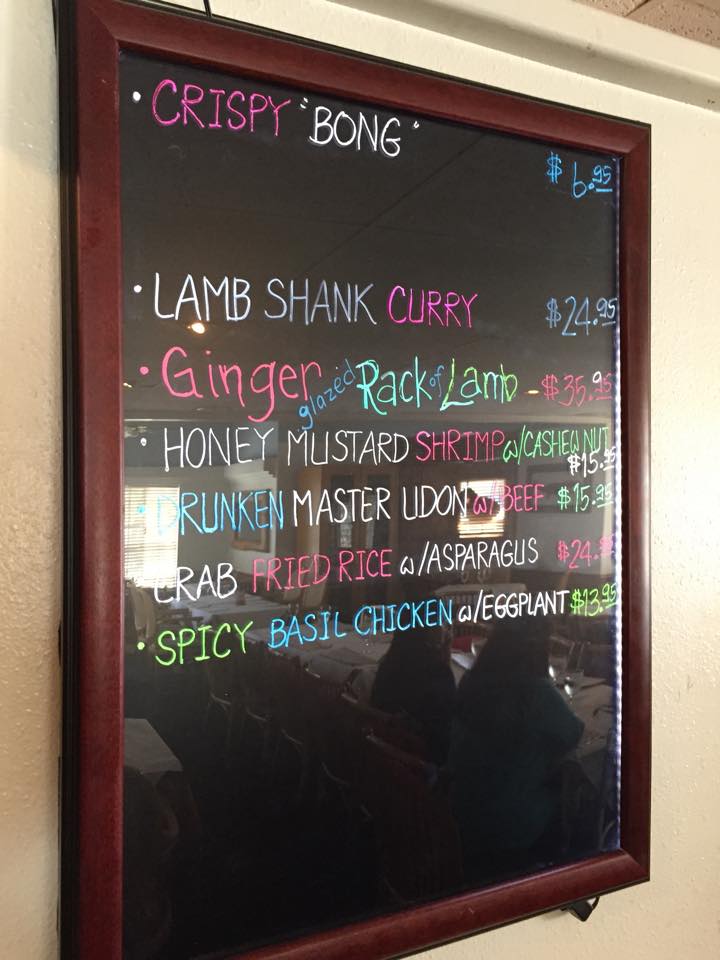 • CRISPY "BONG"
$6.95
• LAMB SHANK CURRY $24.95
• Ginger glazed Rack of Lamb - $35.95
• HONEY MUSTARD SHRIMP w/CASHEW NUT
$15.95
• DRUNKEN MASTER UDON w/BEEF $15.95
CRAB FRIED RICE w/ASPARAGUS $24.95
• SPICY BASIL CHICKEN w/EGGPLANT $13.95